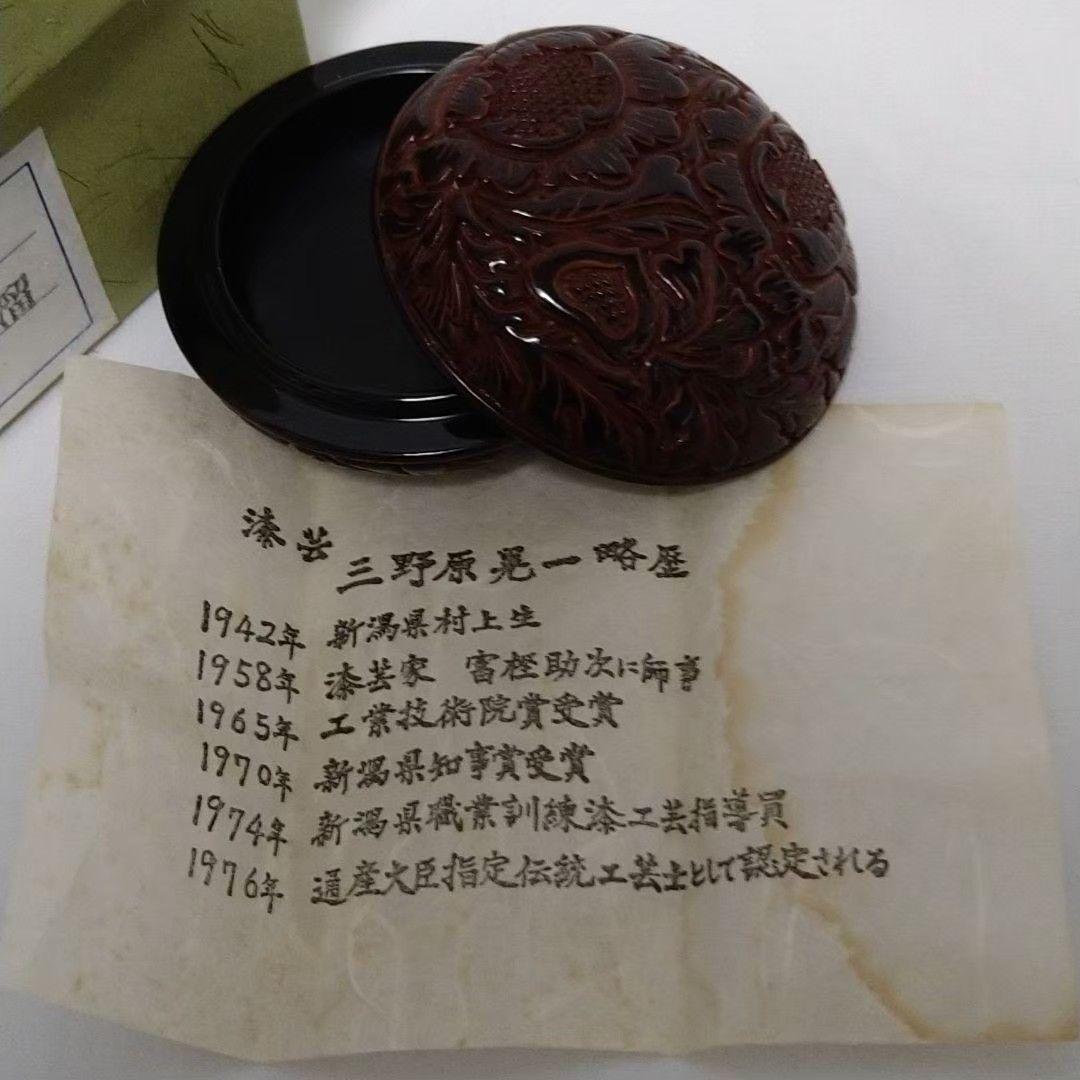 漆芸
三野原晃一略歴
1942年 新潟県村上生
1958年 漆芸家 富樫助次に師事
1965年 工業技術院賞受賞
1970年 新潟県知事賞受賞
1974年 新潟県職業訓練漆工芸指導員
1976年 通産大臣指定伝統工芸士として認定される